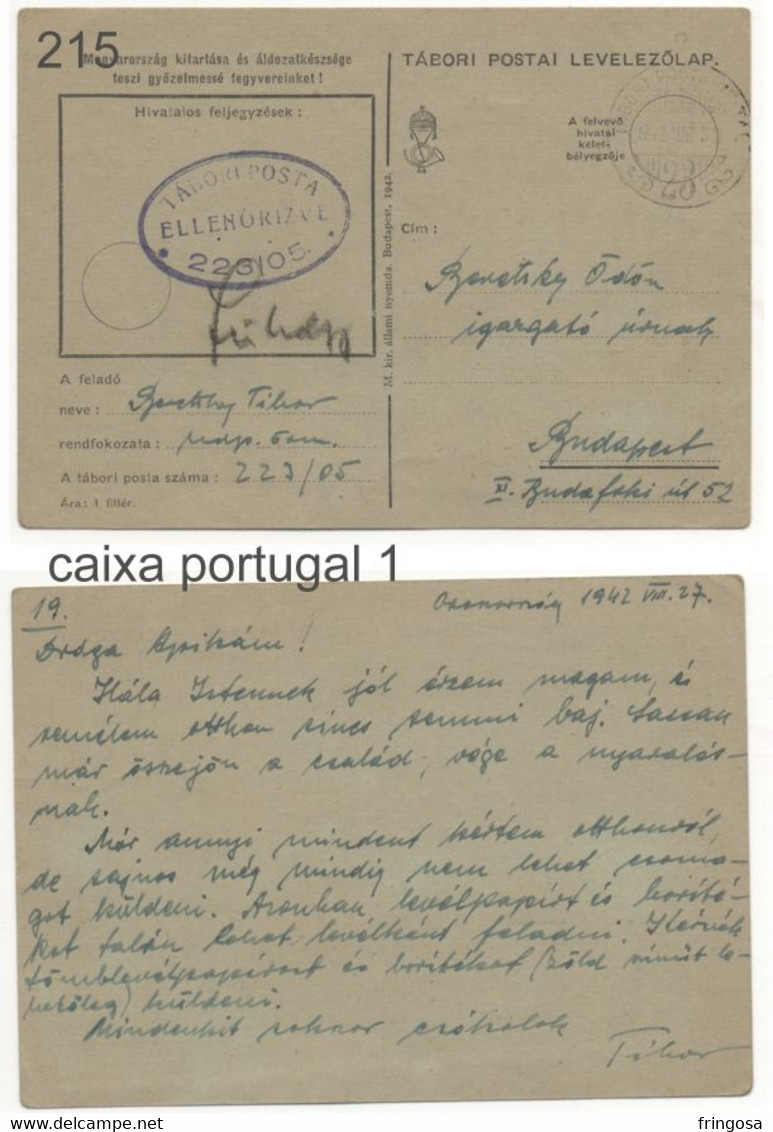 215
Magyarország kitartása és áldozatkészsége
teszi győzelmessé fegyvereinket !
Hivatalos feljegyzések :
TÁBORI POSTA
ELLENŐRIZVE
223/05.
A feladó
neve : Tibor
rendfokozata :
A tábori posta száma : 223/05
Ára : 1 fillér.
M. kir. állami nyomda. Budapest, 1942.
TÁBORI POSTAI LEVELEZŐLAP.
A felvevő
hivatal
kelet-
bélyegzője
Cím :
Ödön
igazgató úrnak
Budapest
XI. Budafoki út 52
caixa portugal 1
19.
Oroszország 1942 VIII. 27.
Drága Apikám !
Hála Istennek jól érzem magam, és
remélem otthon sincs semmi baj. Lassan
már összejön a család, vége a nyaralás-
nak.
Már annyi mindent kértem otthonról,
de sajnos még mindig nem lehet csoma-
got küldeni. Azonban levélpapírt és boríté-
kot talán lehet levélként feladni. Kérnék
tömblevélpapírost és borítékot (zöld színűt le-
hetőleg) küldeni.
Mindenkit sokszor csókolok
Tibor
fringosa